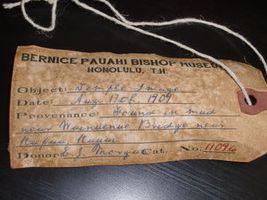 BERNICE PAUAHI BISHOP MUSEUM
HONOLULU, T.H.
Object: Temple Image
Date: Aug. 1908. 1909
Provenance: Found in mud
near Bridge near
Donor: Cat. No. 11096